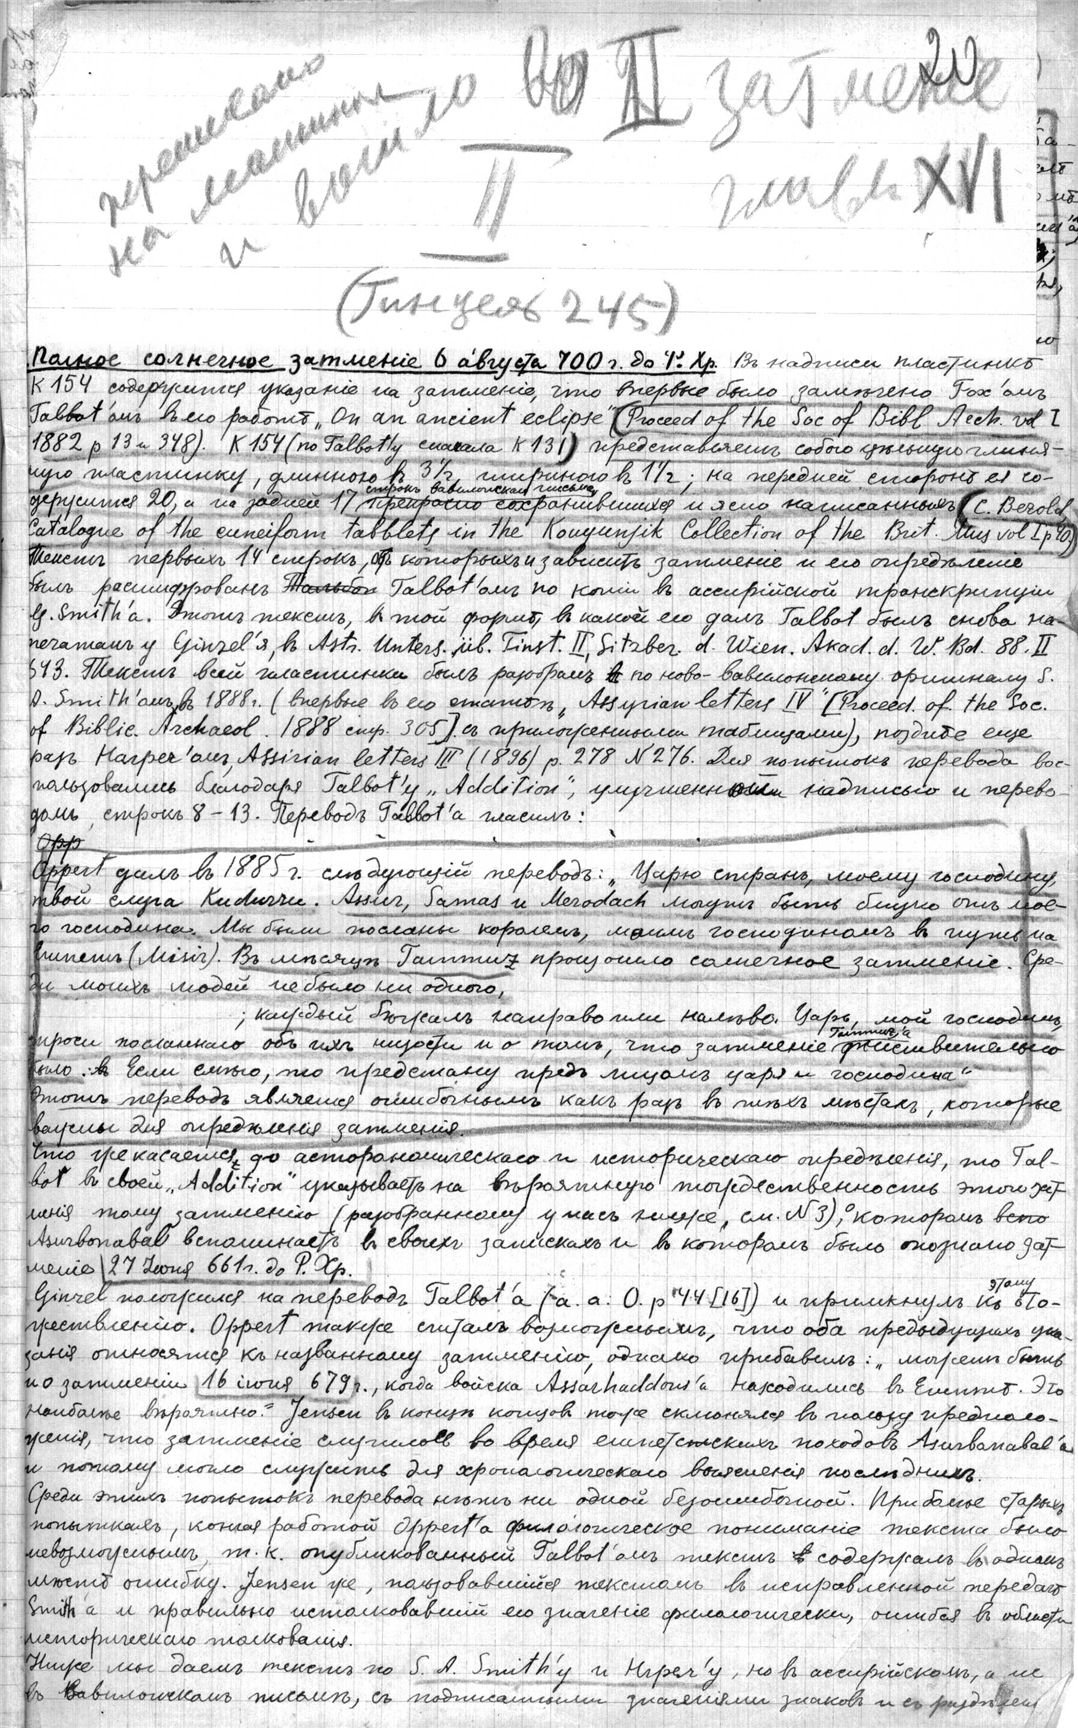 20
переписано
на машинке
и вошло
во II затмение
II
главы XVI
(Гинцель 245)
Полное солнечное затменіе 6 августа 700 г. до Р. Хр. Въ надписи пластинкѣ
К 154 содержится указаніе на затменіе, что впервые было замѣчено Fox'омъ
Talbot'омъ въ его работѣ „On an ancient eclipse" (Proceed of the Soc of Bibl Arch. vol I
1882 p 13 и 348). К 154 (по Talbot'у сначала К 131) представляетъ собою цѣльную глиня-
ную пластинку, длиною въ 3 1/2, шириною въ 1 1/2; на передней сторонѣ ея со-
держится 20, а на задней 17 строкъ вавилонскаго письма, прекрасно сохранившихся и ясно написанныхъ (C. Bezold
Catalogue of the cuneiform tabblets in the Kouyunjik Collection of the Brit. Mus vol I p 40)
Текстъ первыхъ 14 строкъ, отъ которыхъ и зависитъ затменіе и его опредѣленіе
былъ расшифрованъ Talbot'омъ по копіи въ ассирійской транскрипціи
G. Smith'а. Этотъ текстъ, въ той формѣ, въ какой его далъ Talbot былъ снова на-
печатанъ у Ginzel'я, въ Astr. Unters. üb. Finst. II, Sitzber. d. Wien. Akad. d. W. Bd. 88. II
643. Текстъ всей пластинки былъ разобранъ по ново-вавилонскому оригиналу S.
A. Smith'омъ въ 1888 г. (впервые въ его статьѣ „Assyrian letters IV" [Proceed. of the Soc.
of Biblic. Archaeol. 1888 стр. 305] съ приложенными таблицами), позднѣе еще
разъ Harper'омъ, Assirian letters III (1896) p. 278 N 276. Для попытокъ перевода вос-
пользовались благодаря Talbot'у „Addition", улучшенной надписью и перево-
домъ, строкъ 8-13. Переводъ Talbot'а гласилъ:
Opp
Oppert далъ въ 1885 г. слѣдующій переводъ: „Царю странъ, моему господину,
твой слуга Kudurru. Assur, Samas и Merodach могутъ быть близко отъ мое-
го господина. Мы были посланы королемъ, моимъ господиномъ въ путь на
Египетъ (Misir). Въ мѣсяцъ Tammuz произошло солнечное затменіе. Сре-
ди моихъ людей не было ни одного,
; каждый бѣжалъ направо или налѣво. Царь, мой господинъ,
спроси посланнаго объ ихъ низости и о томъ, что затменіе Tammuz'а дѣйствительно
было. Если смѣю, то предстану предъ лицомъ царя и господина"
Этотъ переводъ является ошибочнымъ какъ разъ въ тѣхъ мѣстахъ, которые
важны для опредѣленія затменія.
Что же касается до астрономическаго и историческаго опредѣленія, то Tal-
bot въ своей „Addition" указываетъ на вѣроятную тождественность этого зат-
менія тому затменію (разобранному у насъ ниже, см. N 3), о которомъ
Asurbanabal вспоминаетъ въ своихъ запискахъ и въ которомъ было опознано зат-
меніе 27 Іюня 661 г. до Р. Хр.
Ginzel положился на переводъ Talbot'а (a. a. O. p 44 [16]) и примкнулъ къ этому ото-
жествленію. Oppert также считалъ возможнымъ, что оба предыдущихъ ука-
занія относятся къ названному затменію, однако прибавилъ: „можетъ быть
и о затменіи 16 іюня 679 г., когда войска Assarhaddons'а находились въ Египтѣ. Это
наиболѣе вѣроятно." Jensen въ концѣ концовъ тоже склонялся въ пользу предполо-
женія, что затменіе случилось во время египетскихъ походовъ Asurbanabal'а
и потому могло служить для хронологическаго выясненія послѣднихъ.
Среди этихъ попытокъ перевода нѣтъ ни одной безошибочной. При болѣе старыхъ
попыткахъ, кончая работой Oppert'а филологическое пониманіе текста было
невозможнымъ, т. к. опубликованный Talbot'омъ текстъ содержалъ въ одномъ
мѣстѣ ошибку. Jensen же, пользовавшійся текстомъ въ исправленной передачѣ
Smith'а и правильно истолковавшій его значеніе филологически, ошибся въ области
историческаго толкованія.
Ниже мы даемъ текстъ по S. A. Smith'у и Hrper'у, но въ ассирійскомъ, а не
въ Вавилонскомъ письмѣ, съ подписанными значеніями знаковъ и съ